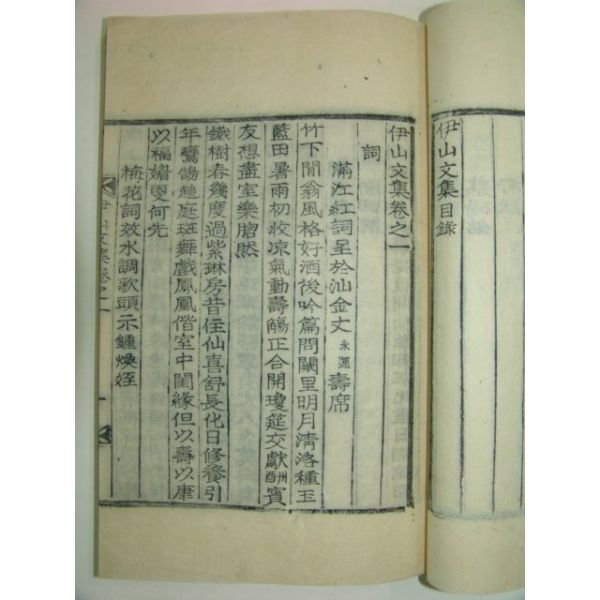 伊山文集目錄
伊山文集卷之一
詞
滿江紅詞呈於汕金丈永運壽席
竹下閒翁風格好酒後吟篇問闕里明月淸洛種玉
藍田暑雨初收凉氣動壽觴正合開瓊筵交獻酬賓
友想盡室樂陶然
鐵樹春幾度過紫琳房昔住仙喜舒長化日修養引
年鸞鵠趍庭斑舞戱鳳凰偕室中閨緣但以壽以康
以福媚更何先
梅花詞效水調歌頭示鍾煥姪
伊山文集卷之一
一